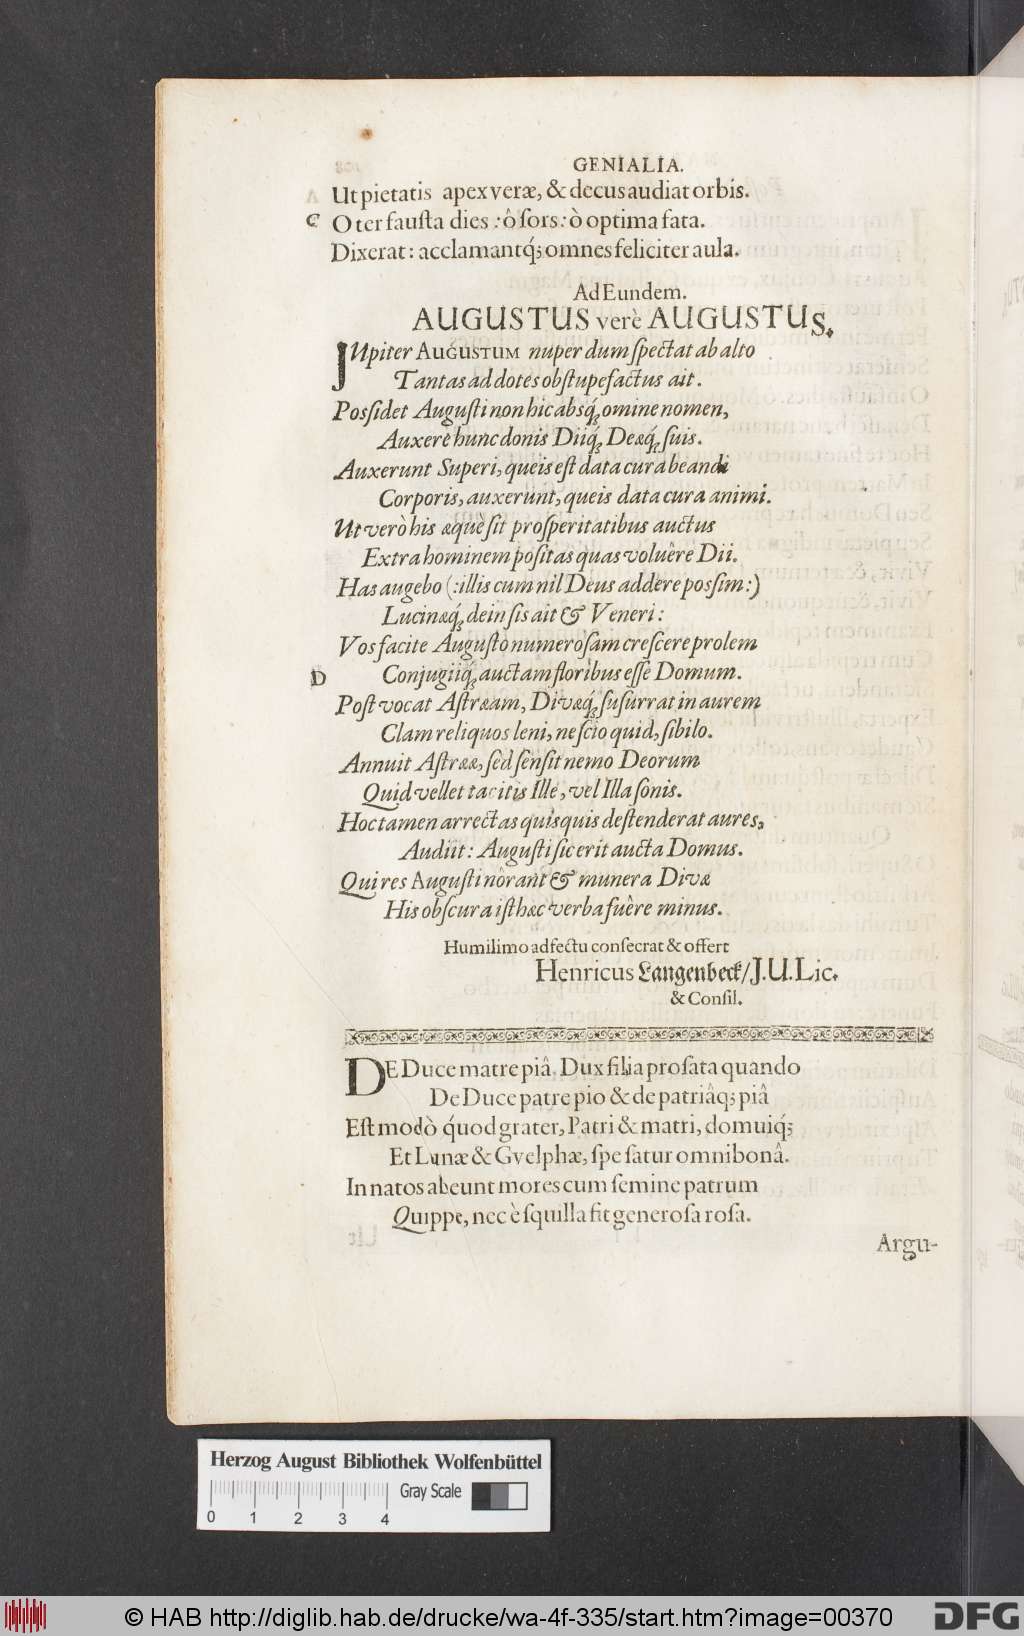 GENIALIA.
Ut pietatis apex veræ, & decus audiat orbis.
C O ter fausta dies: ô sors: ò optima fata.
Dixerat: acclamantq́; omnes feliciter aula.
Ad Eundem.
AUGUSTUS verè AUGUSTUS.
JUpiter AUGUSTUM nuper dum spectat ab alto
Tantas ad dotes obstupefactus ait.
Possidet Augusti non hic absq́; omine nomen,
Auxere hunc donis Diiq́; Deæq́; suis.
Auxerunt Superi, queis est data cura beandi
Corporis, auxerunt, queis data cura animi.
Ut verò his æquè sit prosperitatibus auctus
Extra hominem positas quas voluêre Dii.
Has augebo (: illis cum nil Deus addere possim :)
Lucinæq́; dein sis ait & Veneri:
Vos facite Augusto numerosam crescere prolem
D Conjugiiq́; auctam floribus esse Domum.
Post vocat Astræam, Divæq́; susurrat in aurem
Clam reliquos leni, nescio quid, sibilo.
Annuit Astrææ, sed sensit nemo Deorum
Quid vellet tacitis Ille, vel Illa sonis.
Hoc tamen arrectas quisquis destenderat aures,
Audiit: Augusti sic erit aucta Domus.
Qui res Augusti nôrant & munera Divæ
His obscura isthæc verba fuêre minus.
Humilimo adfectu consecrat & offert
Henricus Langenbeck/ J.U.Lic.
& Consil.
DE Duce matre piâ. Dux filia prosata quando
De Duce patre pio & de patriâq; piâ
Est modò q́uod grater, Patri & matri, domuiq́;
Et Lunæ & Gvelphæ, spe satur omni bonâ.
In natos abeunt mores cum semine patrum
Quippe, nec è squilla fit generosa rosa.
Argu-
Herzog August Bibliothek Wolfenbüttel
Gray Scale
0 1 2 3 4
© HAB http://diglib.hab.de/drucke/wa-4f-335/start.htm?image=00370
DFG